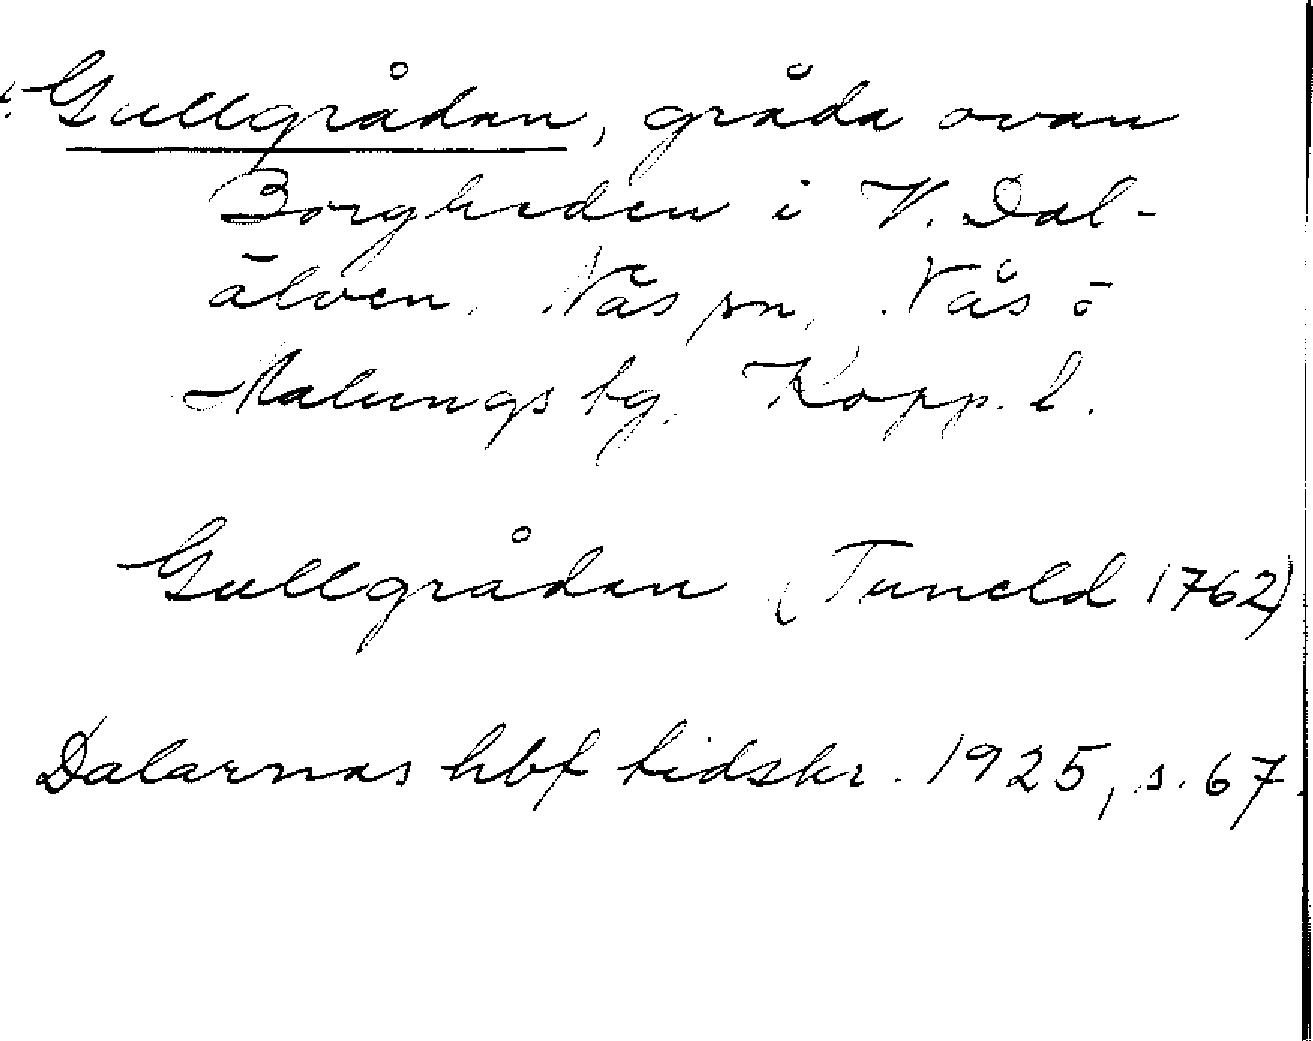 Gullgrådan, gråda ovan
Borgheden i V. Dal-
älven. Nås sn, Nås o
Malungs tg. Kopp. l.
Gullgrådan (Tuneld 1762)
Dalarnas hbf tidskr. 1925, s. 67.